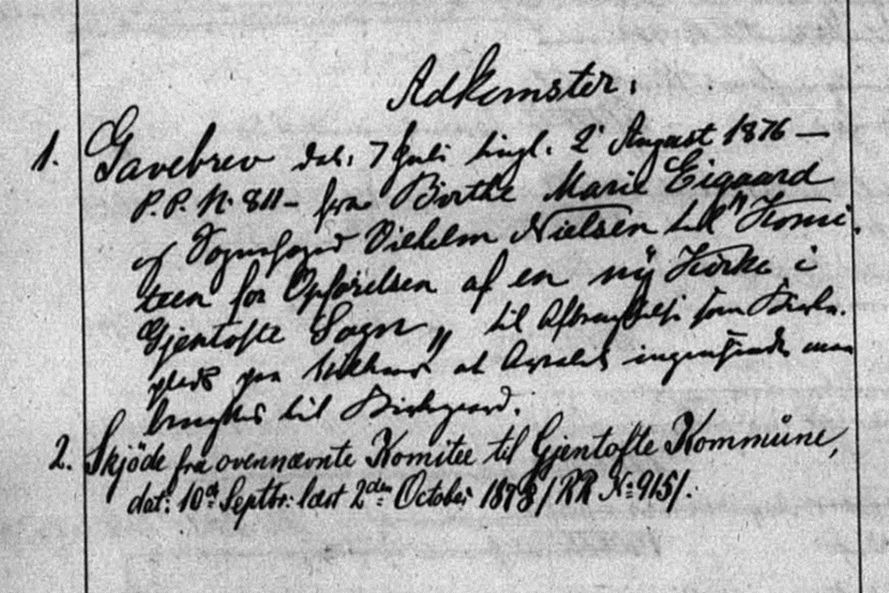 Adkomster.
1. Gavebrev dat. 7 Juli tingl. 2' August 1876 —
P.P. N. 811 — fra Birthe Marie Eigaard
og Sognefoged Vilhelm Nielsen til "Komi-
teen for Opførelsen af en ny Kirke i
Gjentofte Sogn„ til Afbenyttelse som Kirke-
plads paa Vilkaar at Arealet ingensinde maa
benyttes til Kirkegaard.
2. Skjöde fra ovennævnte Komitee til Gjentofte Kommune,
dat: 10d Septbr: læst 2den October 1878 / RR No 915/.